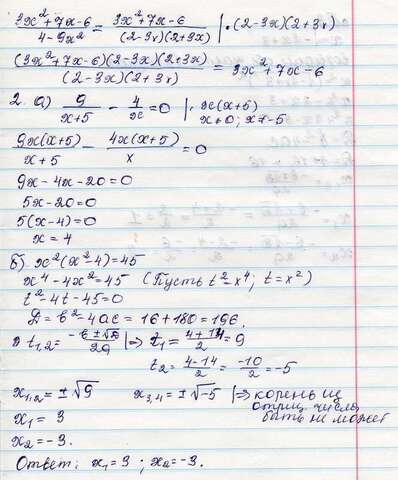 3x²+7x-6 / 4-9x² = 3x²+7x-6 / (2-3x)(2+3x) | ·(2-3x)(2+3x)
(3x²+7x-6)(2-3x)(2+3x) / (2-3x)(2+3x) = 3x²+7x-6
2. а) 9 / x+5 - 4 / x = 0 | · x(x+5)
x≠0; x≠-5
9x(x+5) / x+5 - 4x(x+5) / x = 0
9x-4x-20=0
5x-20=0
5(x-4)=0
x=4
б) x²(x²-4)=45
x⁴-4x²=45 (Пусть t²=x⁴; t=x²)
t²-4t-45=0
Д=b²-4ac=16+180=196.
t₁,₂= -b±√Д / 2a |⇒ t₁= 4+14 / 2 =9
t₂= 4-14 / 2 = -10 / 2 =-5
x₁,₂=±√9 x₃,₄=±√-5 |⇒ корень из
отриц. числа
быть не может
x₁=3
x₂=-3.
Ответ: x₁=3; x₂=-3.